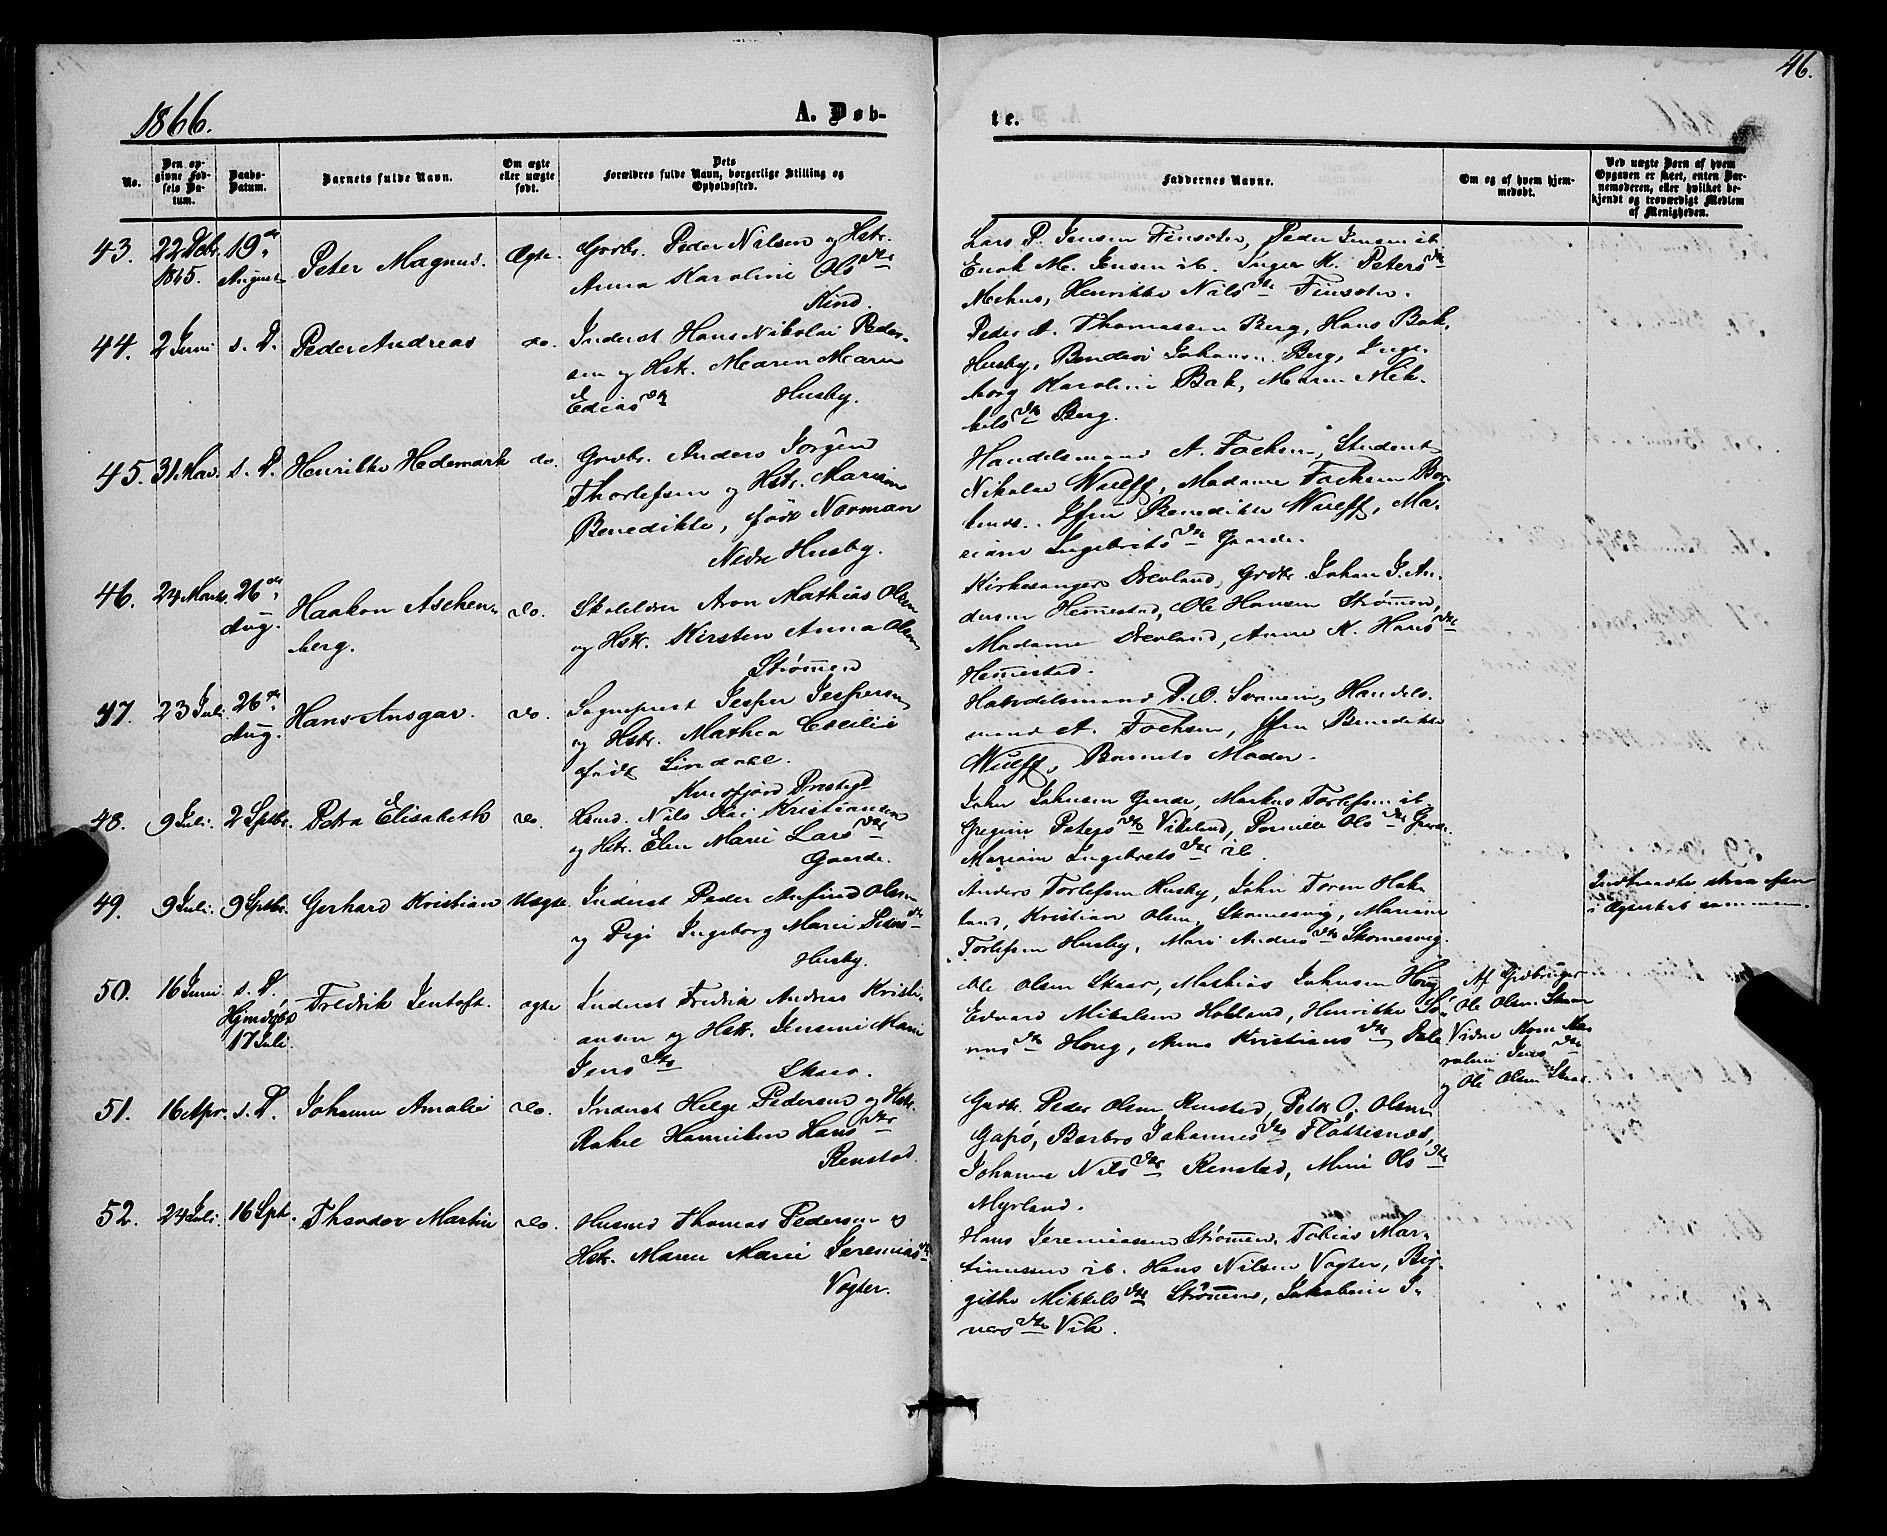 46.
1866.
A. Døb-
te.
No.
Den op-
givne Fød-
sels Da-
tum.
Daabs-
Datum.
Barnets fulde Navn.
Om ægte
eller uægte
født.
Dets
Forældres fulde Navn, borgerlige Stilling og
Opholdssted.
Faddernes Navne.
Om og af hvem hjem-
medøbt.
Ved uægte Børn af hvem
Opgaven er skeet, enten Bar-
nemoderen, eller hvilket be-
kjendt og troværdigt Medlem
af Menigheden.
43.
22 Dcbr.
1865.
19de
August
Peter Magnus.
Ægte.
Gbrbr. Peder Nilsen og Hstr.
Anna Karoline Olsdtr
Kind.
Lars P. Jensen Finsæter, Peder Jensen ib.
Enok M. Jensen ib. Inger K. Petersdtr
Mehus, Henrikke Nilsdtr Finsæter.
44.
2 Juni
s. D.
Peder Andreas
do.
Inderst Hans Nikolai Peder-
sen og Hstr. Maren Marie
Ediasdtr Husby.
Peder A. Thomassen Berg, Hans Bak,
Husby, Johansn. Berg, Inge-
borg Karoline Bak, Maren Mik-
kelsdtr Berg.
45.
31 Mai.
s. D.
Henrikke Hedemark
do.
Grdbr. Anders Jørgen
Thorlefsen og Hstr. Mariane
Benedikte, født Norman
Nedre Husby.
Handelsmand A. Fochsen, Student
Nikolai Wulff, Madame Fochsen
Jfru Benedikte Wulff, Ma-
riane Ingebrigtsdtr Gaarde.
46.
24 Marts.
26de
Aug.
Haakon Aschen-
berg.
do.
Skolelærer Aron Mathias Olsen
og Hstr. Kirsten Anna Olsen
Strømmen
Kirkesanger Drevland, Grdbr. Johan J. An-
dersen Hemestad, Ole Hansen Strømmen,
Madame Drevland, Anne K. Hansdtr
Hemestad.
47.
23 Juli.
26de
Aug.
Hans Ansgar.
do.
Sogneprest Jesper Jespersen
og Hstr. Mathea Cecilie
født Lindahl.
Kvæfjord Prestegd
Handelsmand P. O. Handels-
mand A. Fochsen, Jfru Benedikte
Wulff, Barnets Moder.
48.
9 Juli.
2 Septbr.
Petra Elisabeth
do.
Husmd. Nils Kai Kristiansen
og Hstr. Elen Marie Larsdtr
Gaarde.
John Johnsen Gaarde, Markus Torlefsen ib.
Gregine Petersdtr Vikeland, Pernille Olsdtr Gaarde.
Mariane Ingebrigtsdtr ib.
49.
9 Juli.
9 Septbr.
Gerhard Kristian
Uægte.
Inderst Peder Arfind Olsen
og Pige Ingeborg Marie Pedersdtr
Husby.
Anders Torlefsen Husby, John Toren Hok-
land, Kristian Olsen, Skomesvig, Mariane
Torlefsen Husby, Mari Andersdtr Skomesvig.
Indtraadte strax efter
i Ægteskab sammen.
50.
16 Juni
s. D.
Hjmdøbt
17 Juli.
Fredrik Jentoft.
ægte
Inderst Fredrik Andreas Kristi-
ansen og Hstr. Jensine Marie
Jensdtr Skaar.
Ole Olsen Skaar, Mathias Johnsen Houg
Edvard Mikalsen Hokland, Henrikke Sø-
rensdtr Houg, Anna Kristiansdtr Dale
Af Grdbruger
Ole Olsen Skaar
Vidne Kone Ka-
roline Jensdtr
og Ole Olsen Skaar.
51.
16 Apr.
s. D.
Johanne Amalie
do.
Inderst Helge Pedersen og Hstr.
Rakel Hanniken Hansdtr
Renstad.
Grdbr. Peder Olsen Renstad, Peter O. Olsen
Gapø, Barbro Johannesdtr Flottesnæs,
Johanna Nilsdtr Renstad, Mine Olsdtr
Myrland.
52.
24 Juli.
16 Sptr.
Theodor Martin
do.
Husmd Thomas Pedersen og
Hstr. Maren Marie Jeremiasdtr
Vogter.
Hans Jeremiassen Strømmen, Tobias Mar-
tinussen ib. Hans Nilsen Vogter, Bir-
githe Mikkelsdtr Strømmen, Jakobine I-
versdtr Vik.